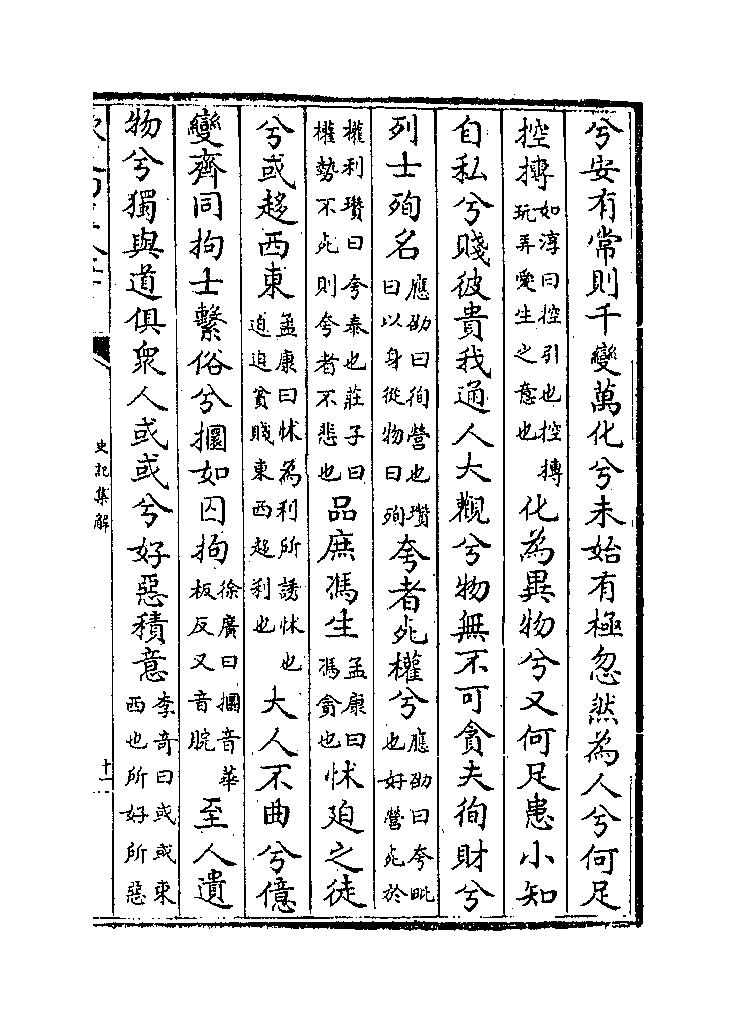 兮安有常則千變萬化兮未始有極忽然為人兮何足
控摶如淳曰控引也控摶玩弄愛生之意也化為異物兮又何足患小知
自私兮賤彼貴我通人大觀兮物無不可貪夫徇財兮
列士殉名應劭曰徇營也瓚曰以身從物曰殉夸者死權兮應劭曰夸毗也好營死於
權利瓚曰夸泰也莊子曰權勢不死則夸者不悲也品庶馮生孟康曰馮貪也怵廹之徒
兮或趨西東孟康曰怵為利所誘怵也迫迫貧賤東西趨利也大人不曲兮億
變齊同拘士繫俗兮攌如囚拘徐廣曰攌音華板反又音脘至人遺
物兮獨與道俱衆人或或兮好惡積意李竒曰或或東西也所好所惡
史記集解
十二